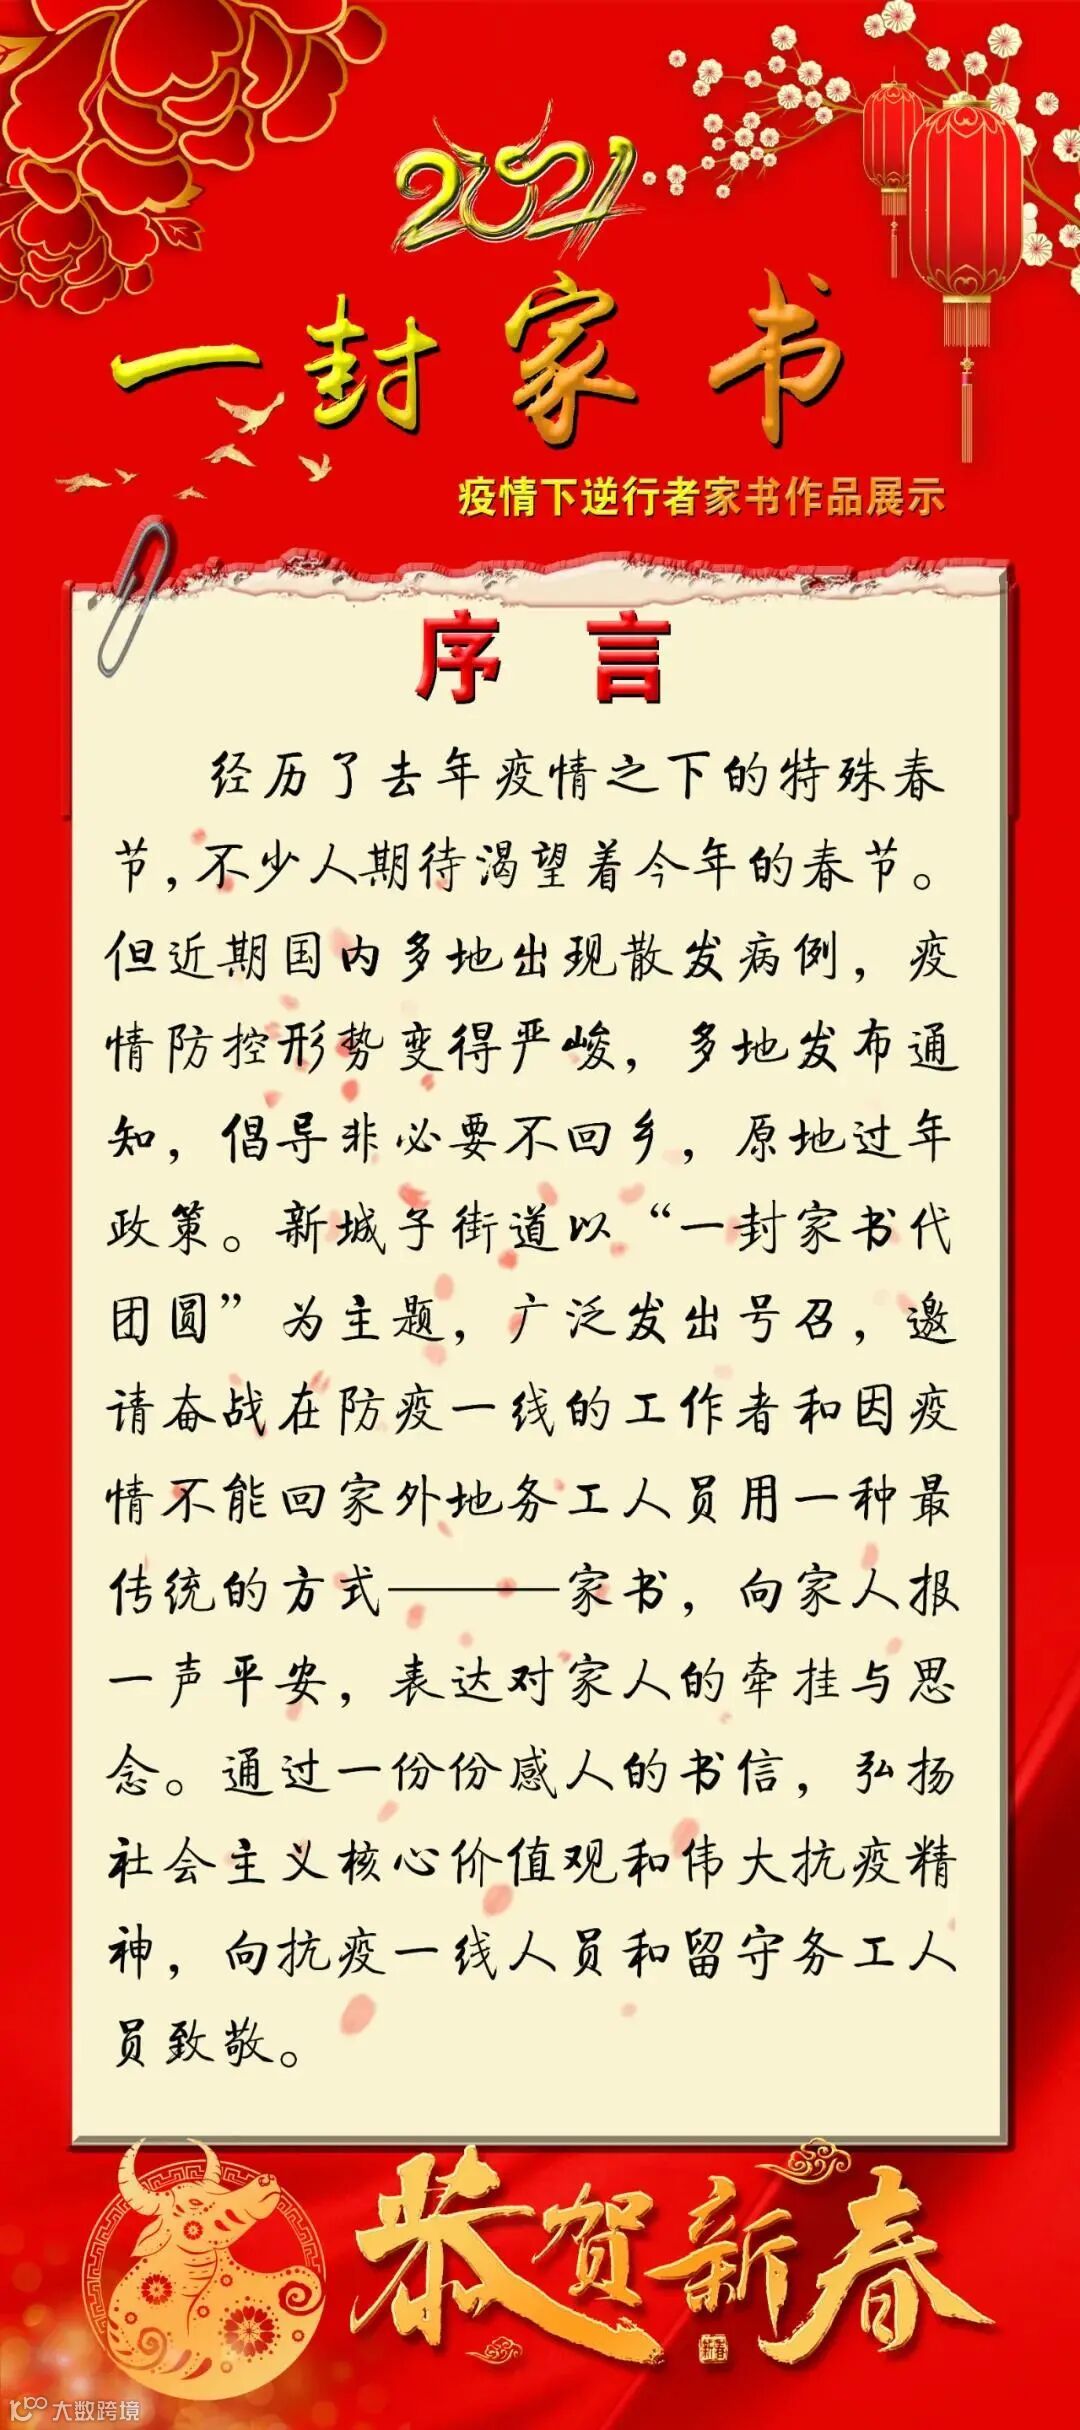 2021
一封家书
疫情下逆行者家书作品展示
序 言
经历了去年疫情之下的特殊春
节，不少人期待渴望着今年的春节。
但近期国内多地出现散发病例，疫
情防控形势变得严峻，多地发布通
知，倡导非必要不回乡，原地过年
政策。新城子街道以“一封家书代
团圆”为主题，广泛发出号召，邀
请奋战在防疫一线的工作者和因疫
情不能回家外地务工人员用一种最
传统的方式———家书，向家人报
一声平安，表达对家人的牵挂与思
念。通过一份份感人的书信，弘扬
社会主义核心价值观和伟大抗疫精
神，向抗疫一线人员和留守务工人
员致敬。
恭贺新春
新春
大数跨境